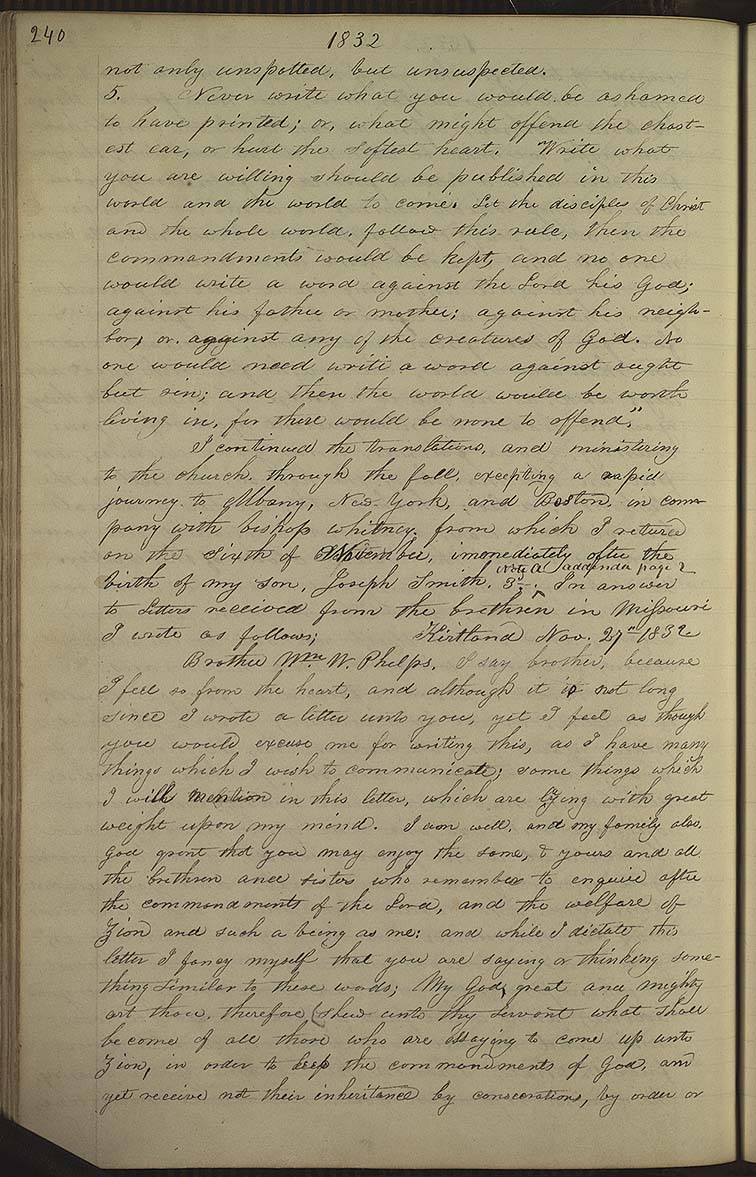 240
1832
not only unspotted, but unsuspected.
5. Never write what you would be ashamed
to have printed; or, what might offend the chast-
est ear, or hurt the softest heart. Write what
you are willing should be published in this
world and the world to come. Let the disciples of Christ
and the whole world, follow this rule, then the
commandments would be kept, and no one
would write a word against the Lord his God;
against his father or mother; against his neigh-
bor; or, against any of the creatures of God. No
one would need write a word against aught
but sin; and then the world would be worth
living in, for there would be none to offend."
I continued the translations, and ministering
to the church through the fall, excepting a rapid
journey to Albany, New-York, and Boston, in com-
pany with bishop Whitney, from which I returned
on the sixth of November, immediately after the
Note A addenda page 2
birth of my son, Joseph Smith, 3d. In answer
to Letters received from the brethren in Missouri
I wrote as follows; Kirtland Nov. 27th 1832
Brother Wm. W. Phelps, I say brother, because
I feel so from the heart, and although it is not long
since I wrote a letter unto you, yet I feel as though
you would excuse me for writing this, as I have many
things which I wish to communicate; some things which
I will mention in this letter, which are lying with great
weight upon my mind. I am well, and my family also,
God grant that you may enjoy the same, & yours and all
the brethren and sisters who remember to enquire after
the commandments of the Lord, and the welfare of
Zion and such a being as me: and while I dictate this
letter I fancy myself that you are saying or thinking some-
thing similar to these words; My God, great and mighty
art thou, therefore shew unto thy servant what shall
become of all those who are essaying to come up unto
Zion, in order to keep the commandments of God, and
yet receive not their inheritance by consecrations, by order or